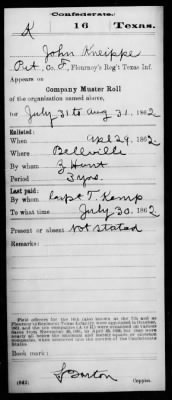 Confederate.
K 16 Texas.
John Kneippe
Pvt, Co. F, Flournoy's Reg't Texas Inf.
Appears on
Company Muster Roll
of the organization named above,
for July 31 to Aug 31, 1862
Enlisted:
When Apr 29, 1862.
Where Bellville
By whom Z Hunt
Period 3 yrs.
Last paid:
By whom Capt T. Kemp
To what time July 30, 1862
Present or absent Not stated
Remarks:
(642) S Barton
Copyist.